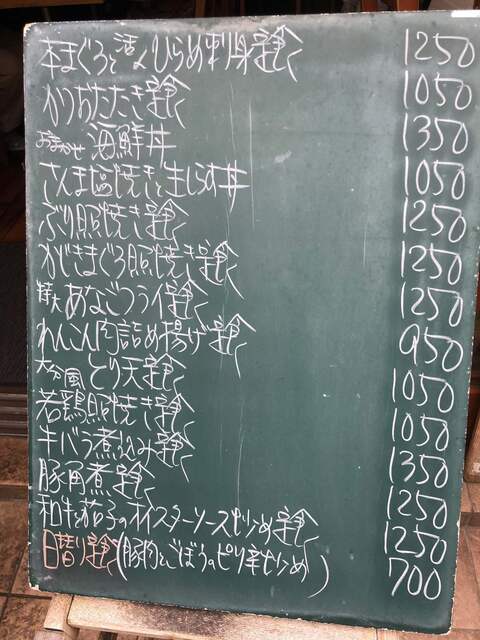 本まぐろと活〆ひらめ刺身定食 1250
かつおたたき定食 1050
おまかせ 海鮮丼 1350
さんま塩焼きと生しらす丼 1050
ぶり照焼き定食 1250
かじきまぐろ照焼き定食 1250
特大あなごフライ定食 1250
れんこん肉詰め揚げ定食 950
大分風とり天定食 1050
若鶏照焼き定食 1050
牛バラ煮込み定食 1350
豚角煮定食 1250
和牛と茄子のオイスターソース炒め定食 1250
日替り定食(豚肉とごぼうのピリ辛炒め) 700